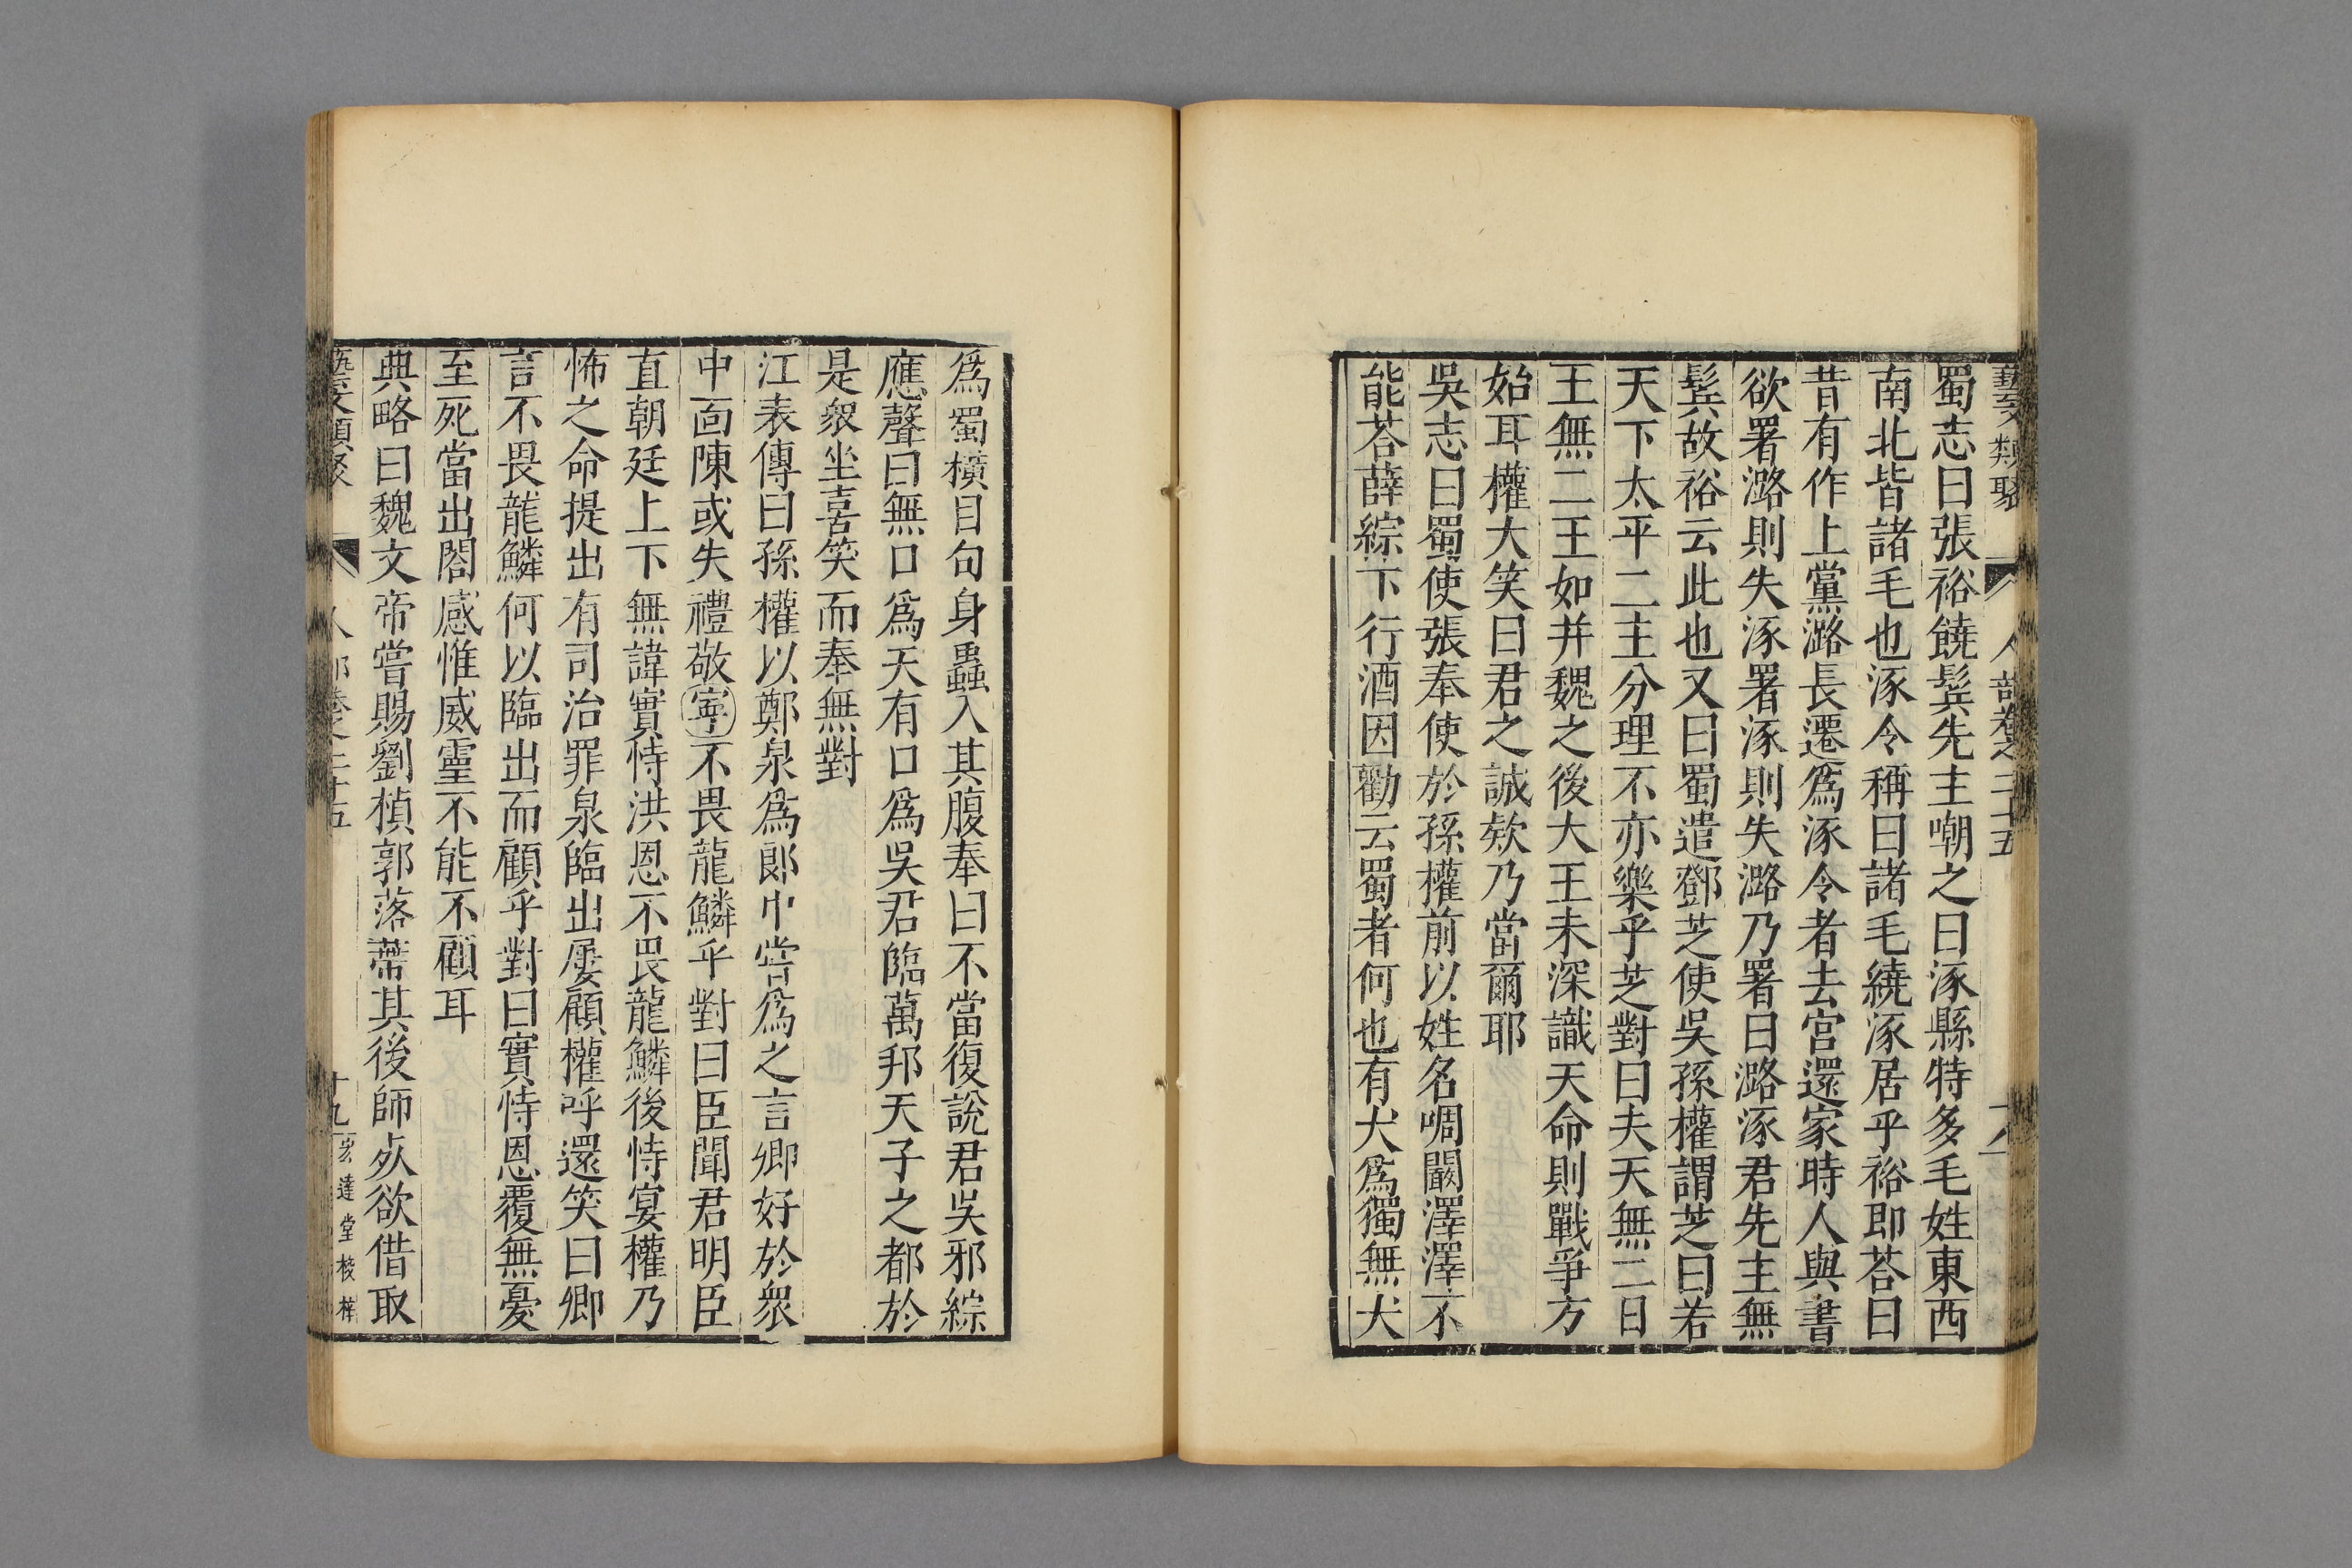 藝文類聚 人部卷之二十五 十八
蜀志曰張裕饒髯先主嘲之曰涿縣特多毛姓東西
南北皆諸毛也涿令稱曰諸毛繞涿居乎裕即荅曰
昔有作上黨潞長遷爲涿令者去官還家時人與書
欲署潞則失涿署涿則失潞乃署曰潞涿君先主無
髯故裕云此也又曰蜀遣鄧芝使吳孫權謂芝曰若
天下太平二主分理不亦樂乎芝對曰夫天無二日
王無二王如并魏之後大王未深識天命則戰爭方
始耳權大笑曰君之誠欵乃當爾耶
吳志曰蜀使張奉使於孫權前以姓名啁闞澤澤不
能荅薛綜下行酒因勸云蜀者何也有犬爲獨無犬
爲蜀橫目句身蟲入其腹奉曰不當復說君吳邪綜
應聲曰無口爲天有口爲吳君臨萬邦天子之都於
是衆坐喜笑而奉無對
江表傳曰孫權以鄭泉爲郎中嘗爲之言卿好於衆
中面陳或失禮敬寧不畏龍鱗乎對曰臣聞君明臣
直朝廷上下無諱實恃洪恩不畏龍鱗後恃宴權乃
怖之命提出有司治罪泉臨出屢顧權呼還笑曰卿
言不畏龍鱗何以臨出而顧乎對曰實恃恩覆無憂
至死當出閤感惟威靈不能不顧耳
典略曰魏文帝嘗賜劉楨郭落帶其後師死欲借取
藝文類聚 人部卷之二十五 十九 宏達堂校梓